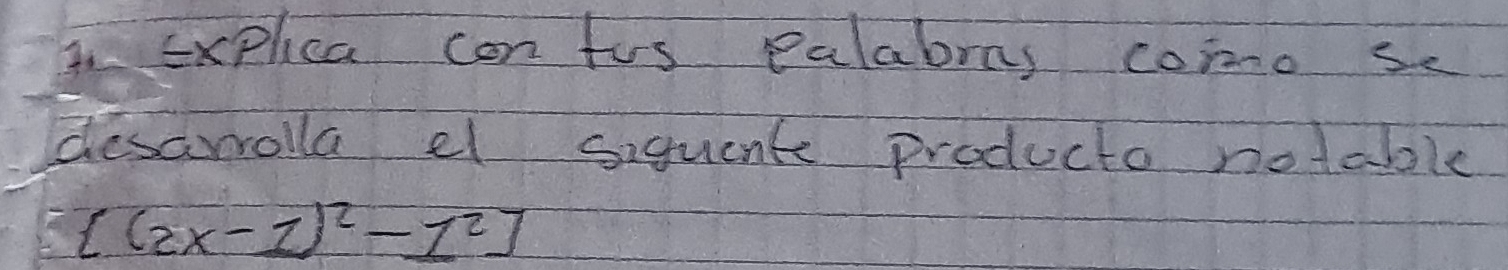 1. Explica con tus palabras como se
desarrolla el siguente producto notable
[(2x-1)²-1²]